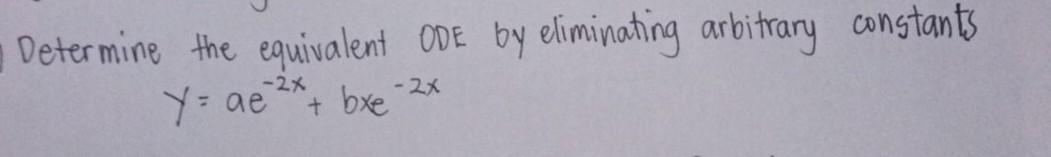 Determine the equivalent ODE by eliminating arbitrary constants
y = ae^-2x + bxe^-2x